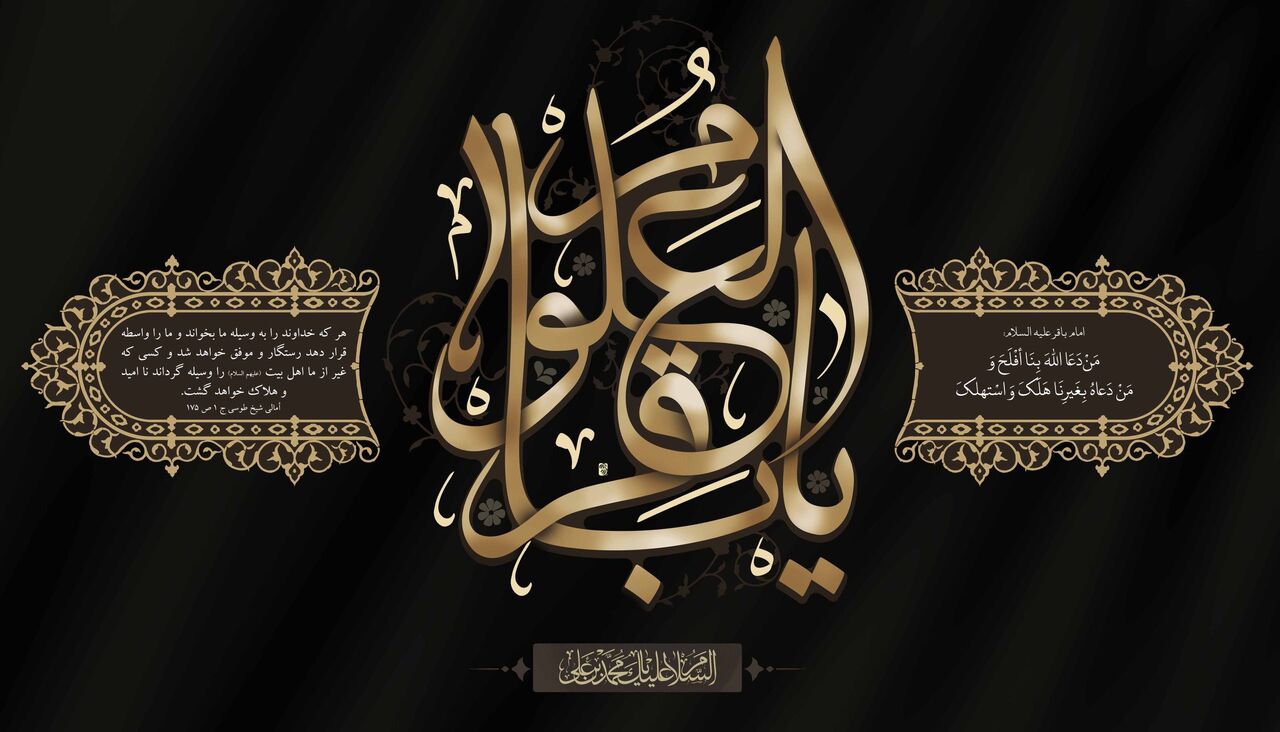 امام باقر علیه السلام:
مَنْ دَعَا اللهَ بِنَا أفْلَحَ وَ
مَنْ دَعَاهُ بِغَیرِنَا هَلَکَ وَ اسْتهلِکَ
یا باقر العلوم
هر که خداوند را به وسیله ما بخواند و ما را واسطه
قرار دهد رستگار و موفق خواهد شد و کسی که
غیر از ما اهل بیت (علیهم السلام) را وسیله گرداند نا امید
و هلاک خواهد گشت.
أمالی شیخ طوسی ج ۱ ص ۱۷۵
السلام علیک یا محمد بن علی